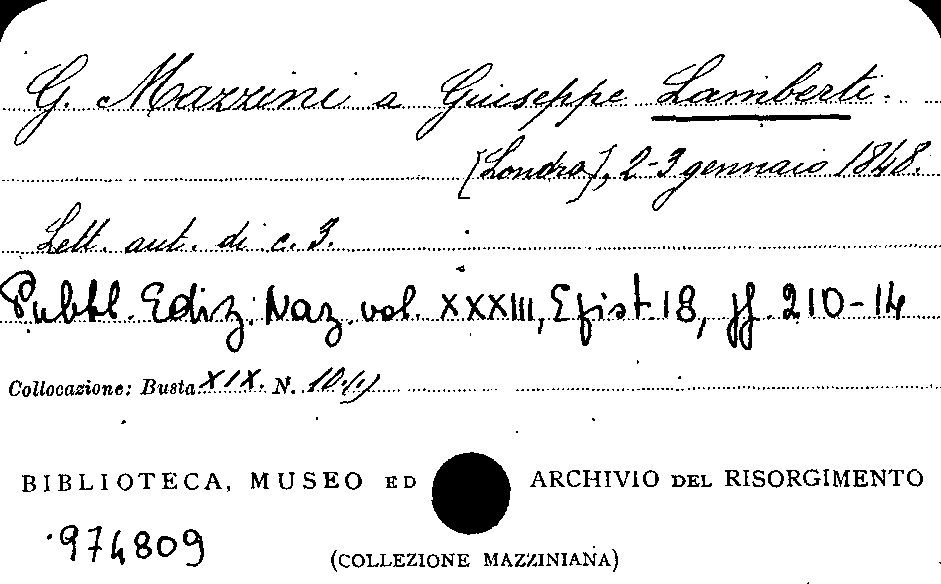 G. Mazzini a Giuseppe Lamberti.
[Londra], 2-3 gennaio 1848.
Lett. aut. di c. 3.
Pubbl. Ediz. Naz. vol. XXXIII, Epist. 18, pp. 210-14
Collocazione: Busta XIX. N. 10.(1)
BIBLIOTECA, MUSEO ED ARCHIVIO DEL RISORGIMENTO
974809
(COLLEZIONE MAZZINIANA)